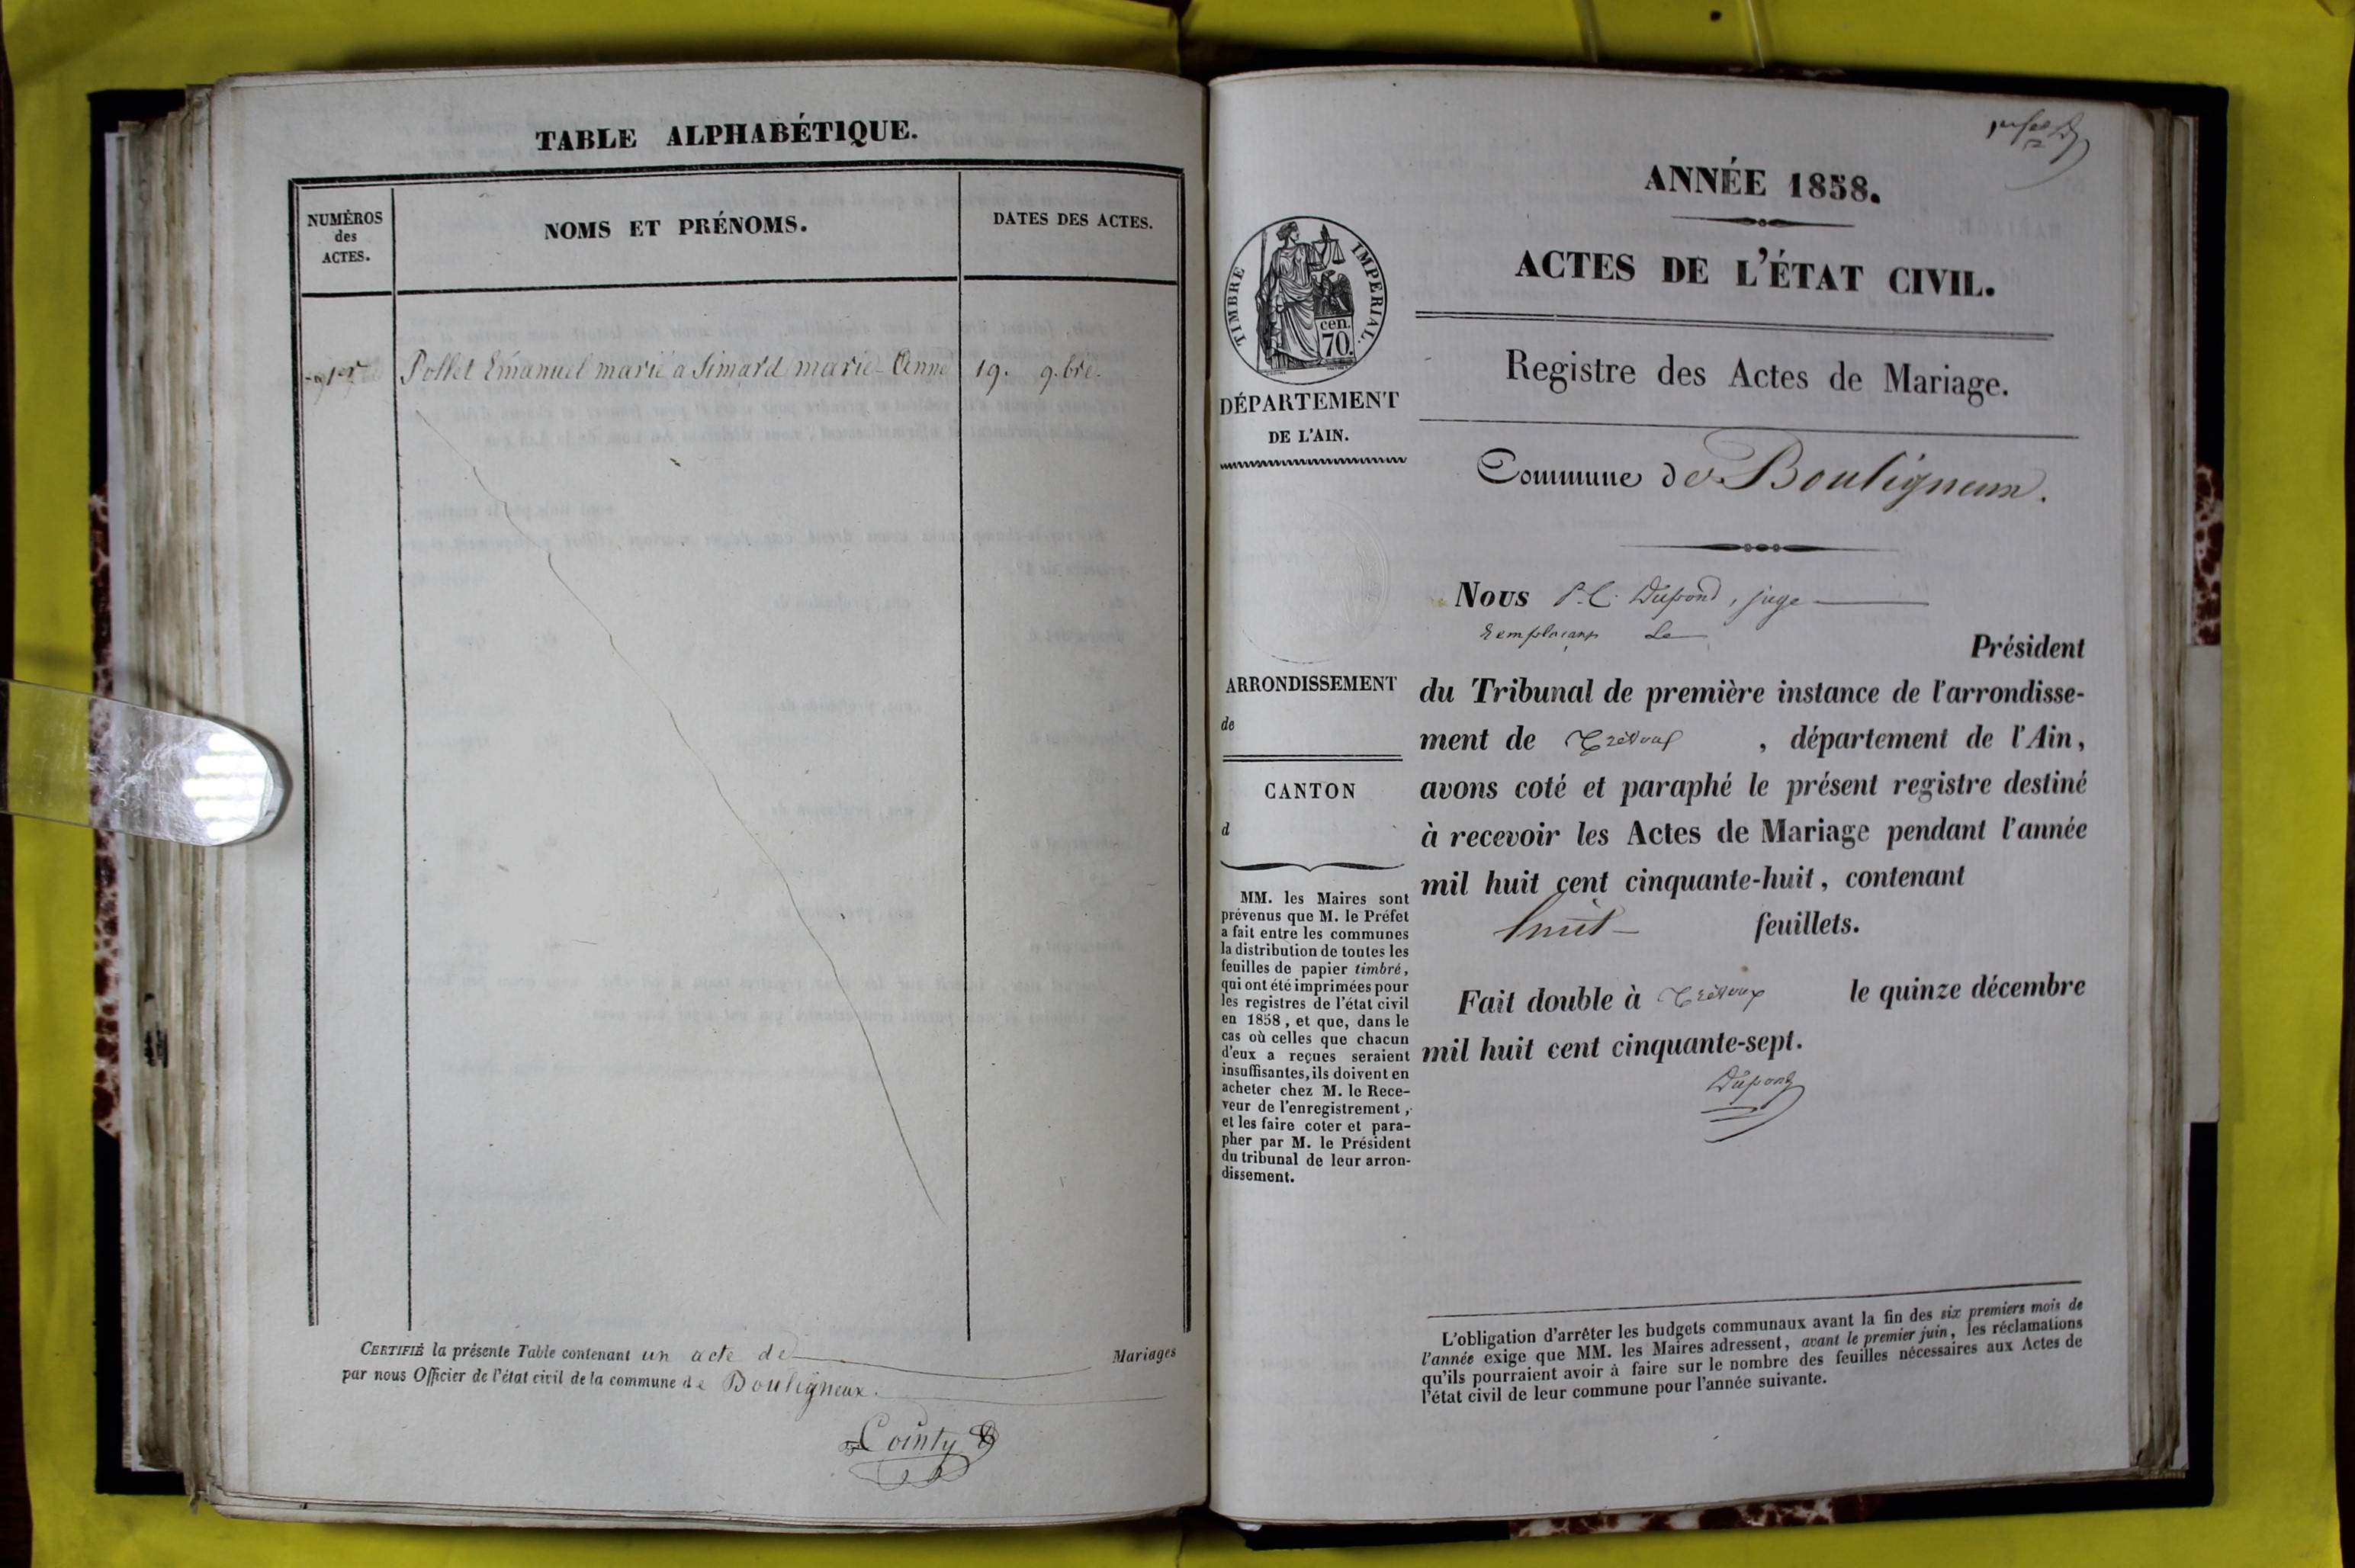 TABLE ALPHABÉTIQUE.
NUMÉROS
des
ACTES.
NOMS ET PRÉNOMS.
DATES DES ACTES.
1er Pollet Emanuel marié a Simard marie-Anne 19. 9.bre.
CERTIFIÉ la présente Table contenant un acte de Mariages
par nous Officier de l'état civil de la commune de Bouligneux.
Cointy
ANNÉE 1858.
ACTES DE L'ÉTAT CIVIL.
TIMBRE IMPERIAL.
cen.
70.
DÉPARTEMENT
DE L'AIN.
Registre des Actes de Mariage.
Commune de Bouligneux.
Nous P. C. Dupond, juge
Remplacant Le
Président
ARRONDISSEMENT
de
CANTON
d
du Tribunal de première instance de l'arrondisse-
ment de Trévoux, département de l'Ain,
avons coté et paraphé le présent registre destiné
à recevoir les Actes de Mariage pendant l'année
mil huit cent cinquante-huit, contenant
huit feuillets.
Fait double à Trévoux le quinze décembre
mil huit cent cinquante-sept.
Dupond
MM. les Maires sont
prévenus que M. le Préfet
a fait entre les communes
la distribution de toutes les
feuilles de papier timbré,
qui ont été imprimées pour
les registres de l'état civil
en 1858, et que, dans le
cas où celles que chacun
d'eux a reçues seraient
insuffisantes, ils doivent en
acheter chez M. le Rece-
veur de l'enregistrement,
et les faire coter et para-
pher par M. le Président
du tribunal de leur arron-
dissement.
L'obligation d'arrêter les budgets communaux avant la fin des six premiers mois de
l'année exige que MM. les Maires adressent, avant le premier juin, les réclamations
qu'ils pourraient avoir à faire sur le nombre des feuilles nécessaires aux Actes de
l'état civil de leur commune pour l'année suivante.